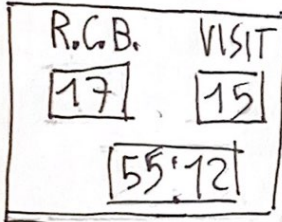 R.C.B. VISIT
17 15
55:12